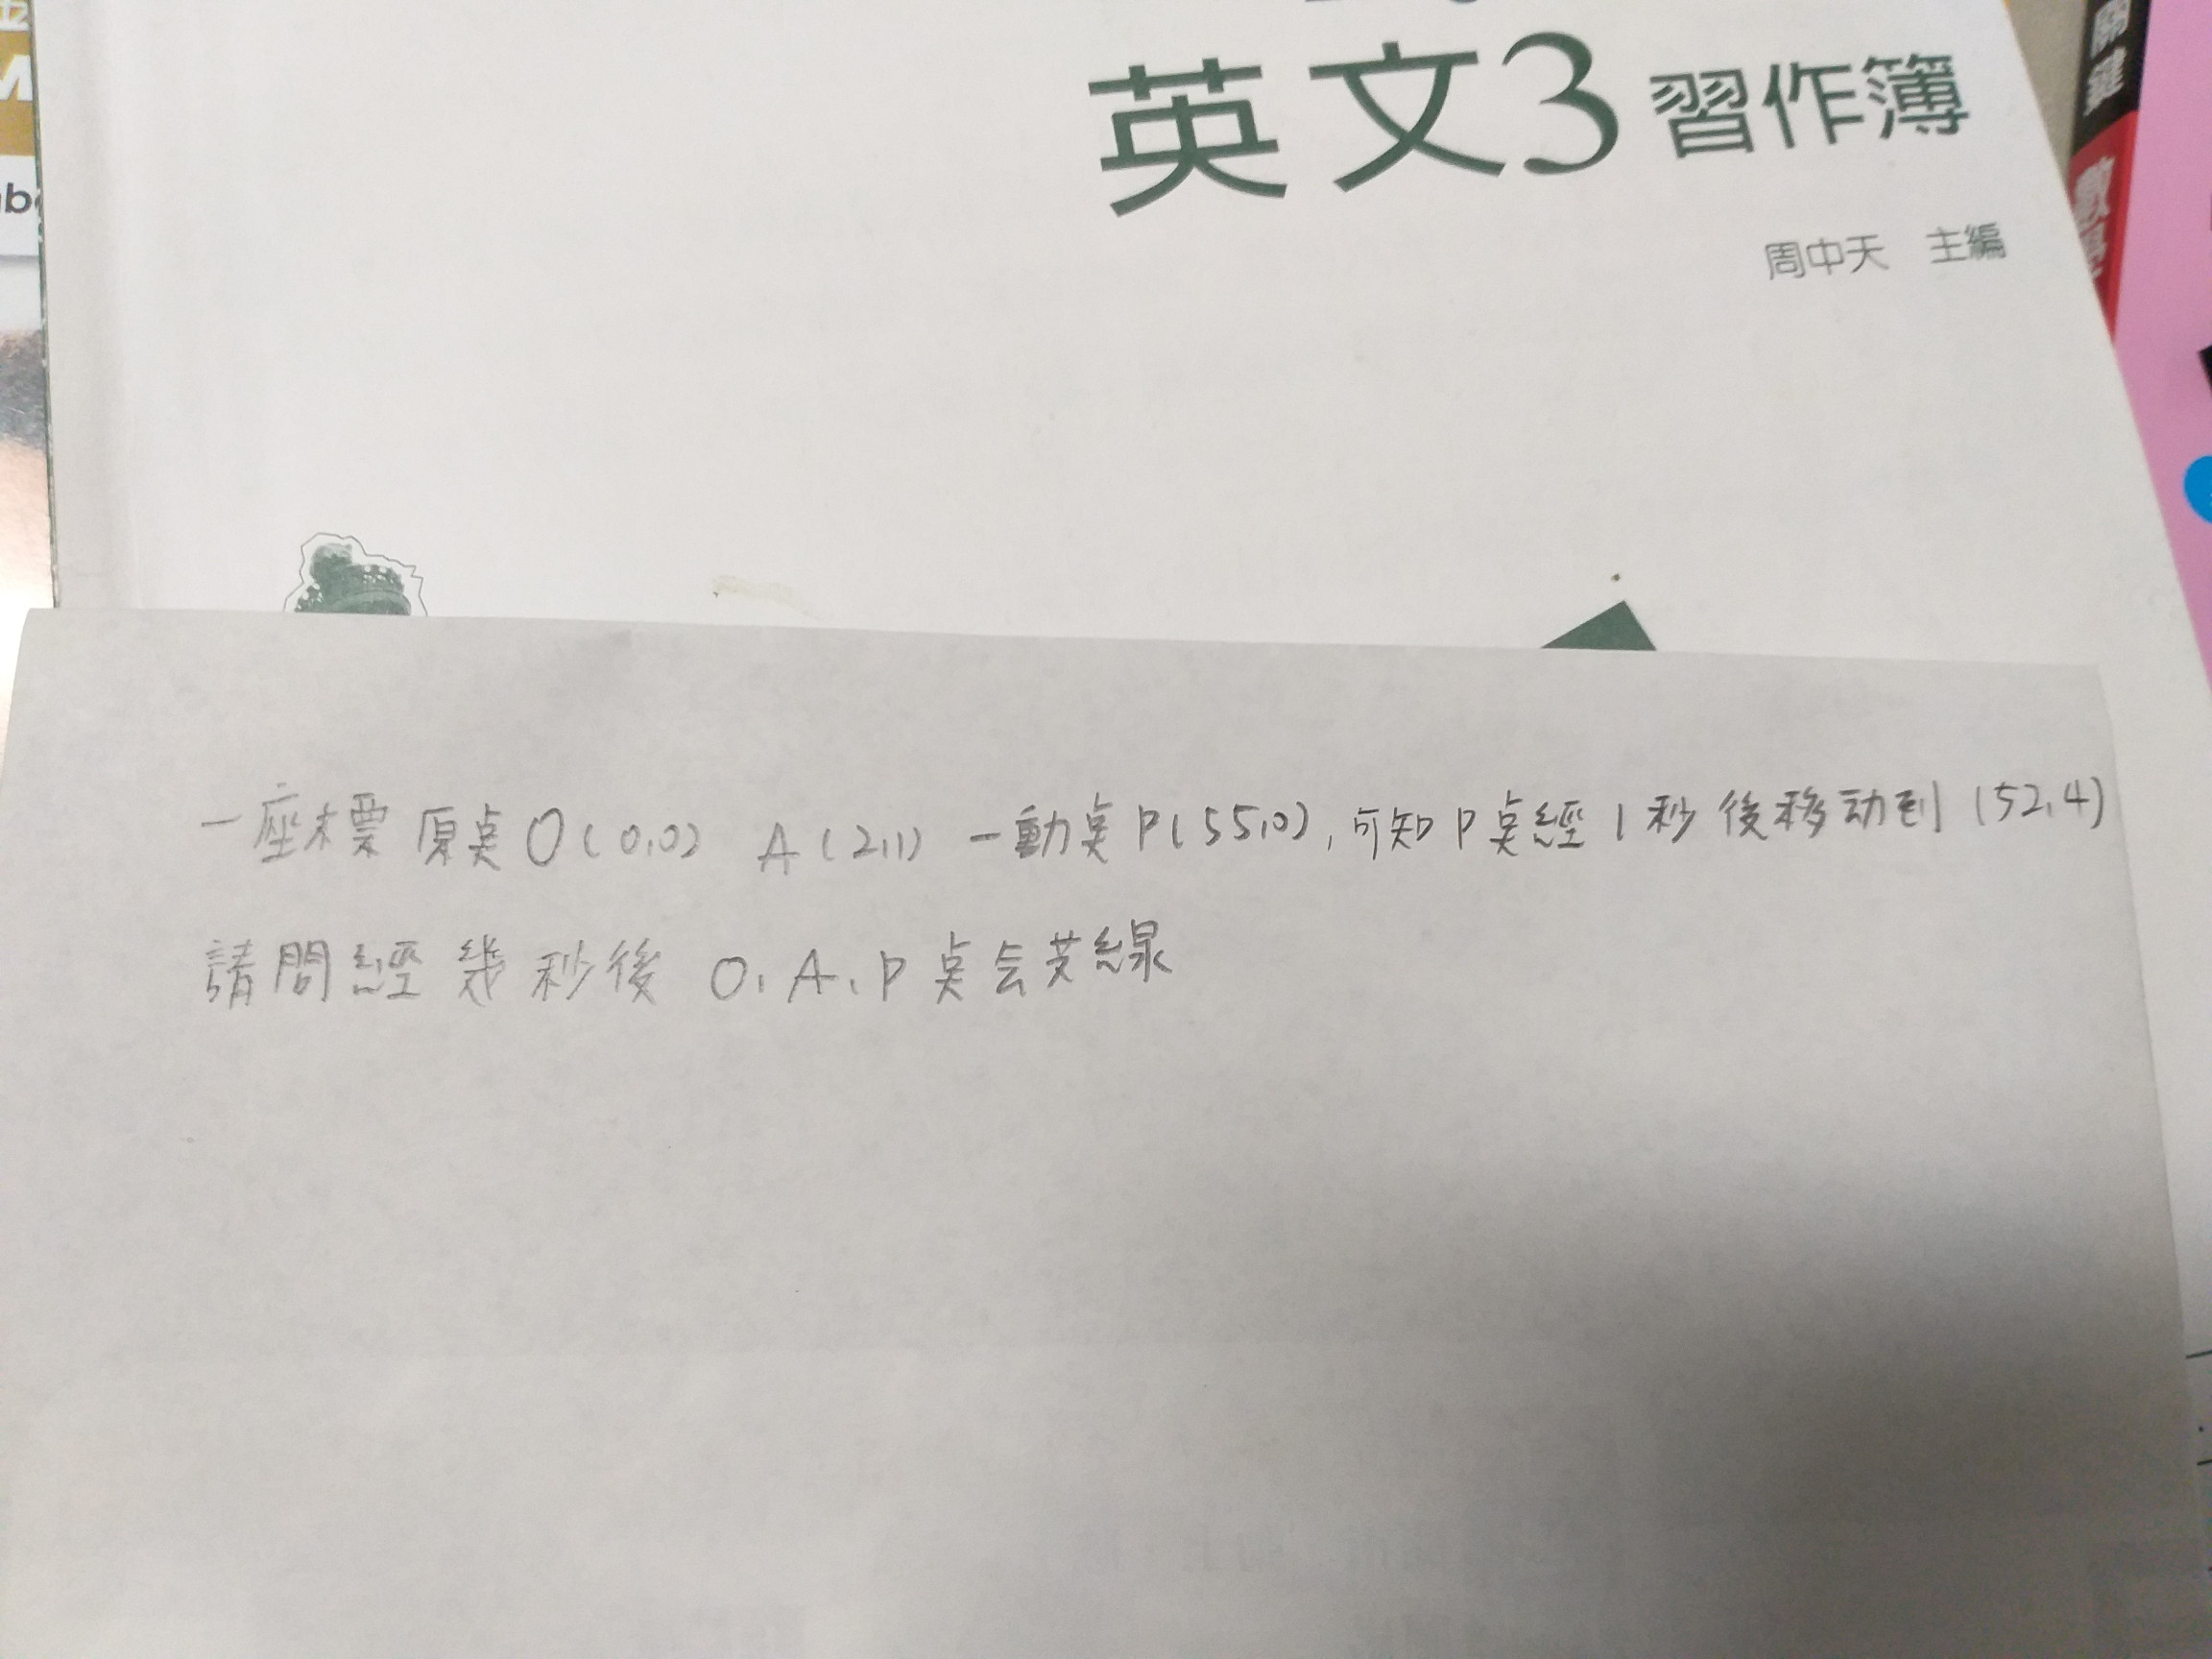 英文3 習作簿
周中天 主編
一座標原點O(0,0) A(2,1) 一動點P(55,0),可知P點經1秒後移动到(52,4)
請問經幾秒後 O、A、P點会共線